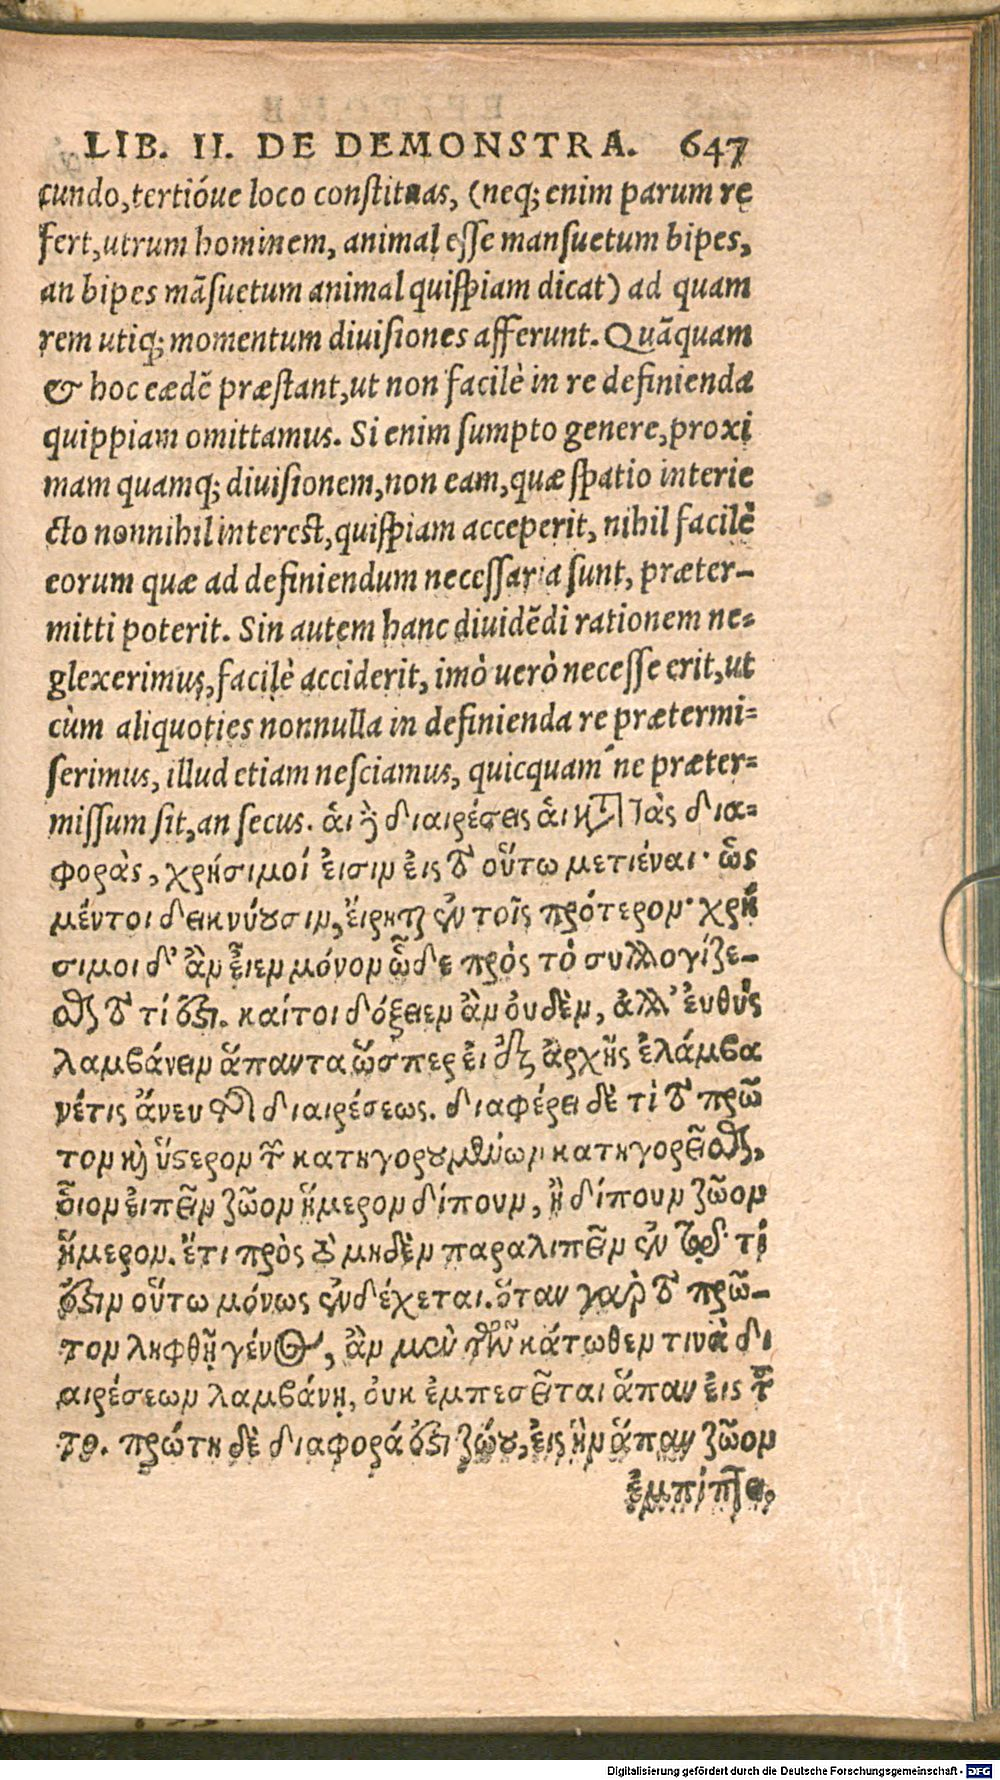 LIB. II. DE DEMONSTRA. 647
cundo, tertióue loco constituas, (neq; enim parum re
fert, utrum hominem, animal esse mansuetum bipes,
an bipes mãsuetum animal quispiam dicat) ad quam
rem utiq; momentum diuisiones afferunt. Quãquam
& hoc eædẽ præstant, ut non facilè in re definienda
quippiam omittamus. Si enim sumpto genere, proxi
mam quamq; diuisionem, non eam, quæ spatio interie
cto nonnihil interest, quispiam acceperit, nihil facilè
eorum quæ ad definiendum necessaria sunt, præter-
mitti poterit. Sin autem hanc diuidẽdi rationem ne=
glexerimus, facilè acciderit, imò uerò necesse erit, ut
cùm aliquoties nonnulla in definienda re prætermi=
serimus, illud etiam nesciamus, quicquam ne præter=
missum sit, an secus. ἁι ϳ διαιρέσεις ἁι κατὰ τὰς δια=
φορὰς, χρήσιμοί ἐισιν ἐις τὸ οὕτω μετιέναι· ὡς
μέντοι δεικνύουσιν, ἔιρηται ἐν τοῖς πρότερον· χρή
σιμοι δ' ἂν ἖ιεν μόνον ὧδε πρὸς τὸ συλλογίζε-
σθαι τὸ τί ἐστι. καίτοι δόξειεν ἂν ὀυδὲν, ἀλλ' ἐυθὺς
λαμβάνειν ἅπαντα ὥσπερ ἐι ἐξ ἀρχῆς ἐλάμβα
νέτις ἄνευ τῆς διαιρέσεως. διαφέρει δὲ τὶ τὸ πρῶ
τον καὶ ὕστερον τῶν κατηγορουμένων κατηγορεῖσθαι,
ὃιον ἐιπεῖν ζῶον ἥμερον δίπουν, ἢ δίπουν ζῶον
ἥμερον. ἔτι πρὸς τὸ μηδὲν παραλιπεῖν ἐν τῷ τί
ἐστιν οὕτω μόνως ἐνδέχεται. ὅταν γὰρ τὸ πρῶ-
τον ληφθῇ γένος, ἂν μὲν τῶν κάτωθεν τινὰ δι
αιρέσεων λαμβάνῃ, ὀυκ ἐμπεσεῖται ἅπαν ἐις τοῦ
το. πρώτη δὲ διαφορά ἐστι ζώου, ἐις ἣν ἅπαν ζῶον
ἐμπίπτει,
Digitalisierung gefördert durch die Deutsche Forschungsgemeinschaft - DFG